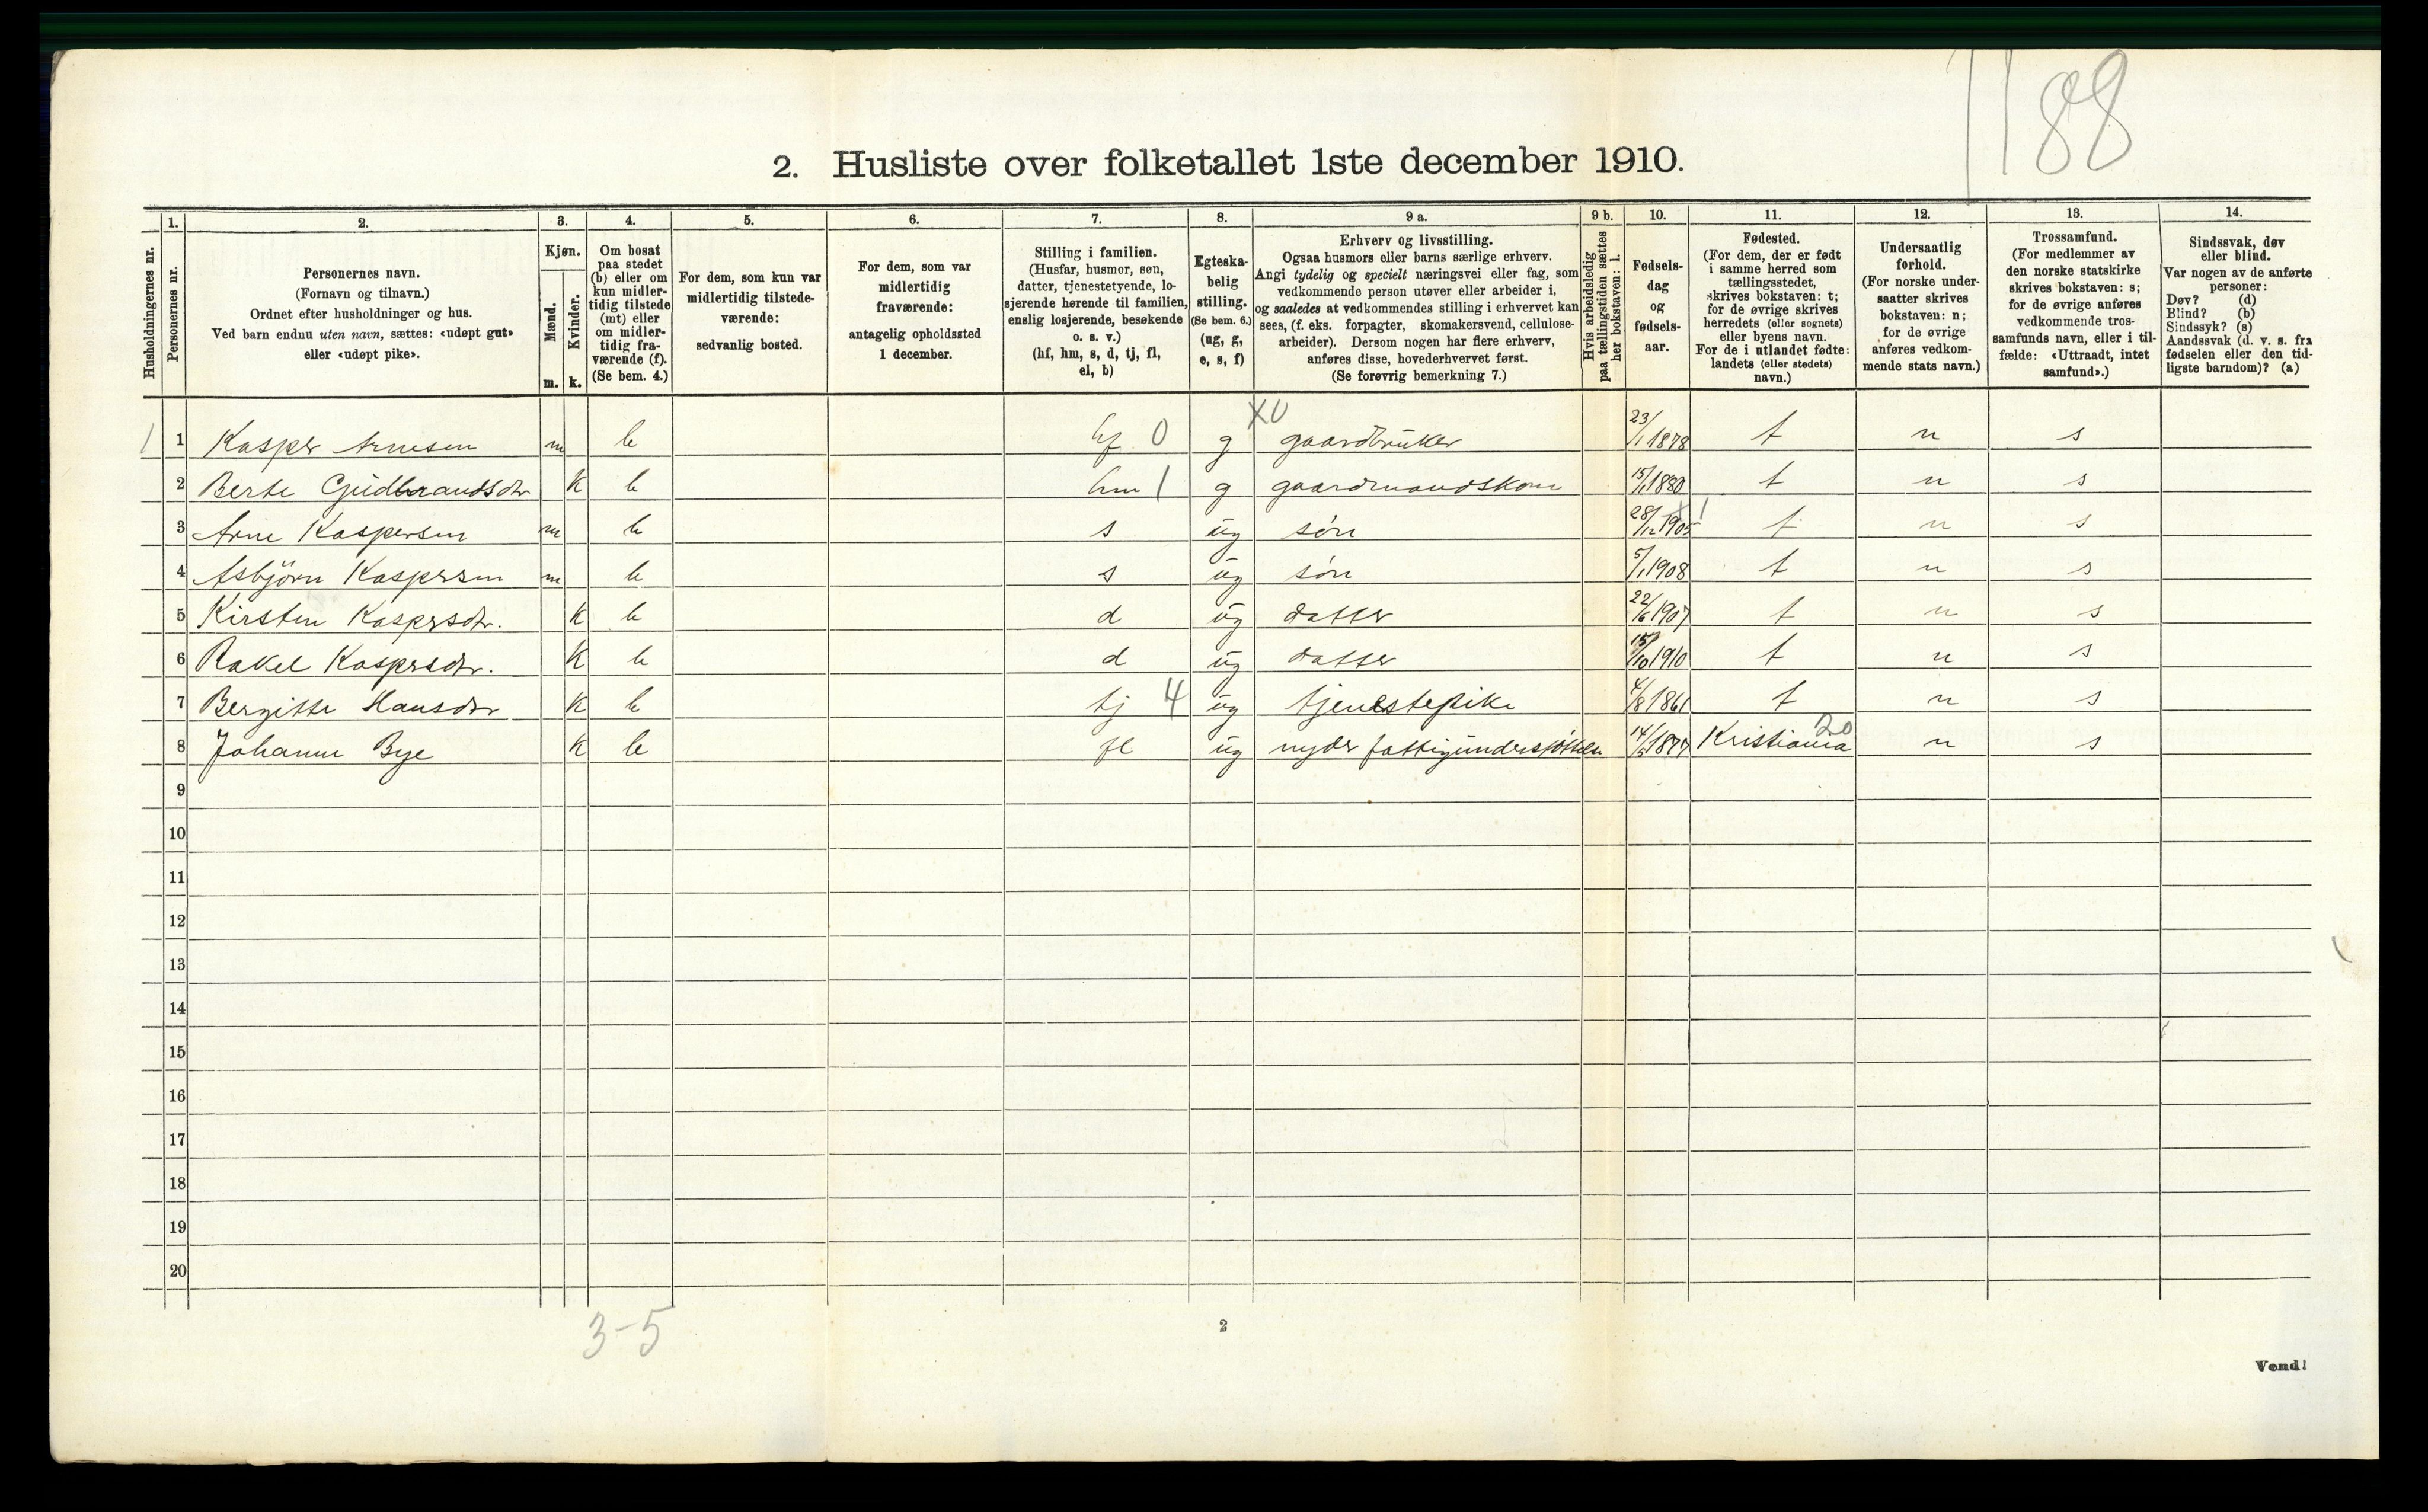 1188
2. Husliste over folketallet 1ste december 1910.
1. 2. 3. 4. 5. 6. 7. 8. 9 a. 9 b. 10. 11. 12. 13. 14.
Husholdningernes nr.
Personernes nr.
Personernes navn.
(Fornavn og tilnavn.)
Ordnet efter husholdninger og hus.
Ved barn endnu uten navn, sættes: «udøpt gut»
eller «udøpt pike».
Kjøn.
Mænd.
Kvinder.
m. k.
Om bosat
paa stedet
(b) eller om
kun midler-
tidig tilstede
(mt) eller
om midler-
tidig fra-
værende (f).
(Se bem. 4.)
For dem, som kun var
midlertidig tilstede-
værende:
sedvanlig bosted.
For dem, som var
midlertidig
fraværende:
antagelig opholdssted
1 december.
Stilling i familien.
(Husfar, husmor, søn,
datter, tjenestetyende, lo-
sjerende hørende til familien,
enslig losjerende, besøkende
o. s. v.)
(hf, hm, s, d, tj, fl,
el, b)
Egteska-
belig
stilling.
(Se bem. 6.)
(ug, g,
e, s, f)
Erhverv og livsstilling.
Ogsaa husmors eller barns særlige erhverv.
Angi tydelig og specielt næringsvei eller fag, som
vedkommende person utøver eller arbeider i,
og saaledes at vedkommendes stilling i erhvervet kan
sees, (f. eks. forpagter, skomakersvend, cellulose-
arbeider). Dersom nogen har flere erhverv,
anføres disse, hovederhvervet først.
(Se forøvrig bemerkning 7.)
Hvis arbeidsledig
paa tællingstiden sættes
her bokstaven: l.
Fødsels-
dag
og
fødsels-
aar.
Fødested.
(For dem, der er født
i samme herred som
tællingsstedet,
skrives bokstaven: t;
for de øvrige skrives
herredets (eller sognets)
eller byens navn.
For de i utlandet fødte:
landets (eller stedets)
navn.)
Undersaatlig
forhold.
(For norske under-
saatter skrives
bokstaven: n;
for de øvrige
anføres vedkom-
mende stats navn.)
Trossamfund.
(For medlemmer av
den norske statskirke
skrives bokstaven: s;
for de øvrige anføres
vedkommende tros-
samfunds navn, eller i til-
fælde: «Uttraadt, intet
samfund».)
Sindssvak, døv
eller blind.
Var nogen av de anførte
personer:
Døv? (d)
Blind? (b)
Sindssyk? (s)
Aandssvak (d. v. s. fra
fødselen eller den tid-
ligste barndom)? (a)
X0
1 1 Kasper Arnesen m b hf 0 g gaardbruker 23/1 1878 t n s
2 Berte Gudbrandsdtr K b hm 1 g gaardmandskone 15/1 1880 t n s
3 Arne Kaspersen m b s ug søn 28/12 1905 t n s
4 Asbjörn Kaspersen m b s ug søn 5/1 1908 t n s
5 Kirsten Kaspersdtr. K b d ug datter 22/6 1907 t n s
6 Rakel Kaspersdtr. K b d ug datter 15/10 1910 t n s
7 Bergitte Hansdtr K b tj 4 ug tjenestepike 4/8 1861 t n s
20
8 Johanne Bye K b fl ug nyder fattigunderstøttelse 14/5 1877 Kristiania n s
9
10
11
12
13
14
15
16
17
18
19
20
3-5
2
Vend!